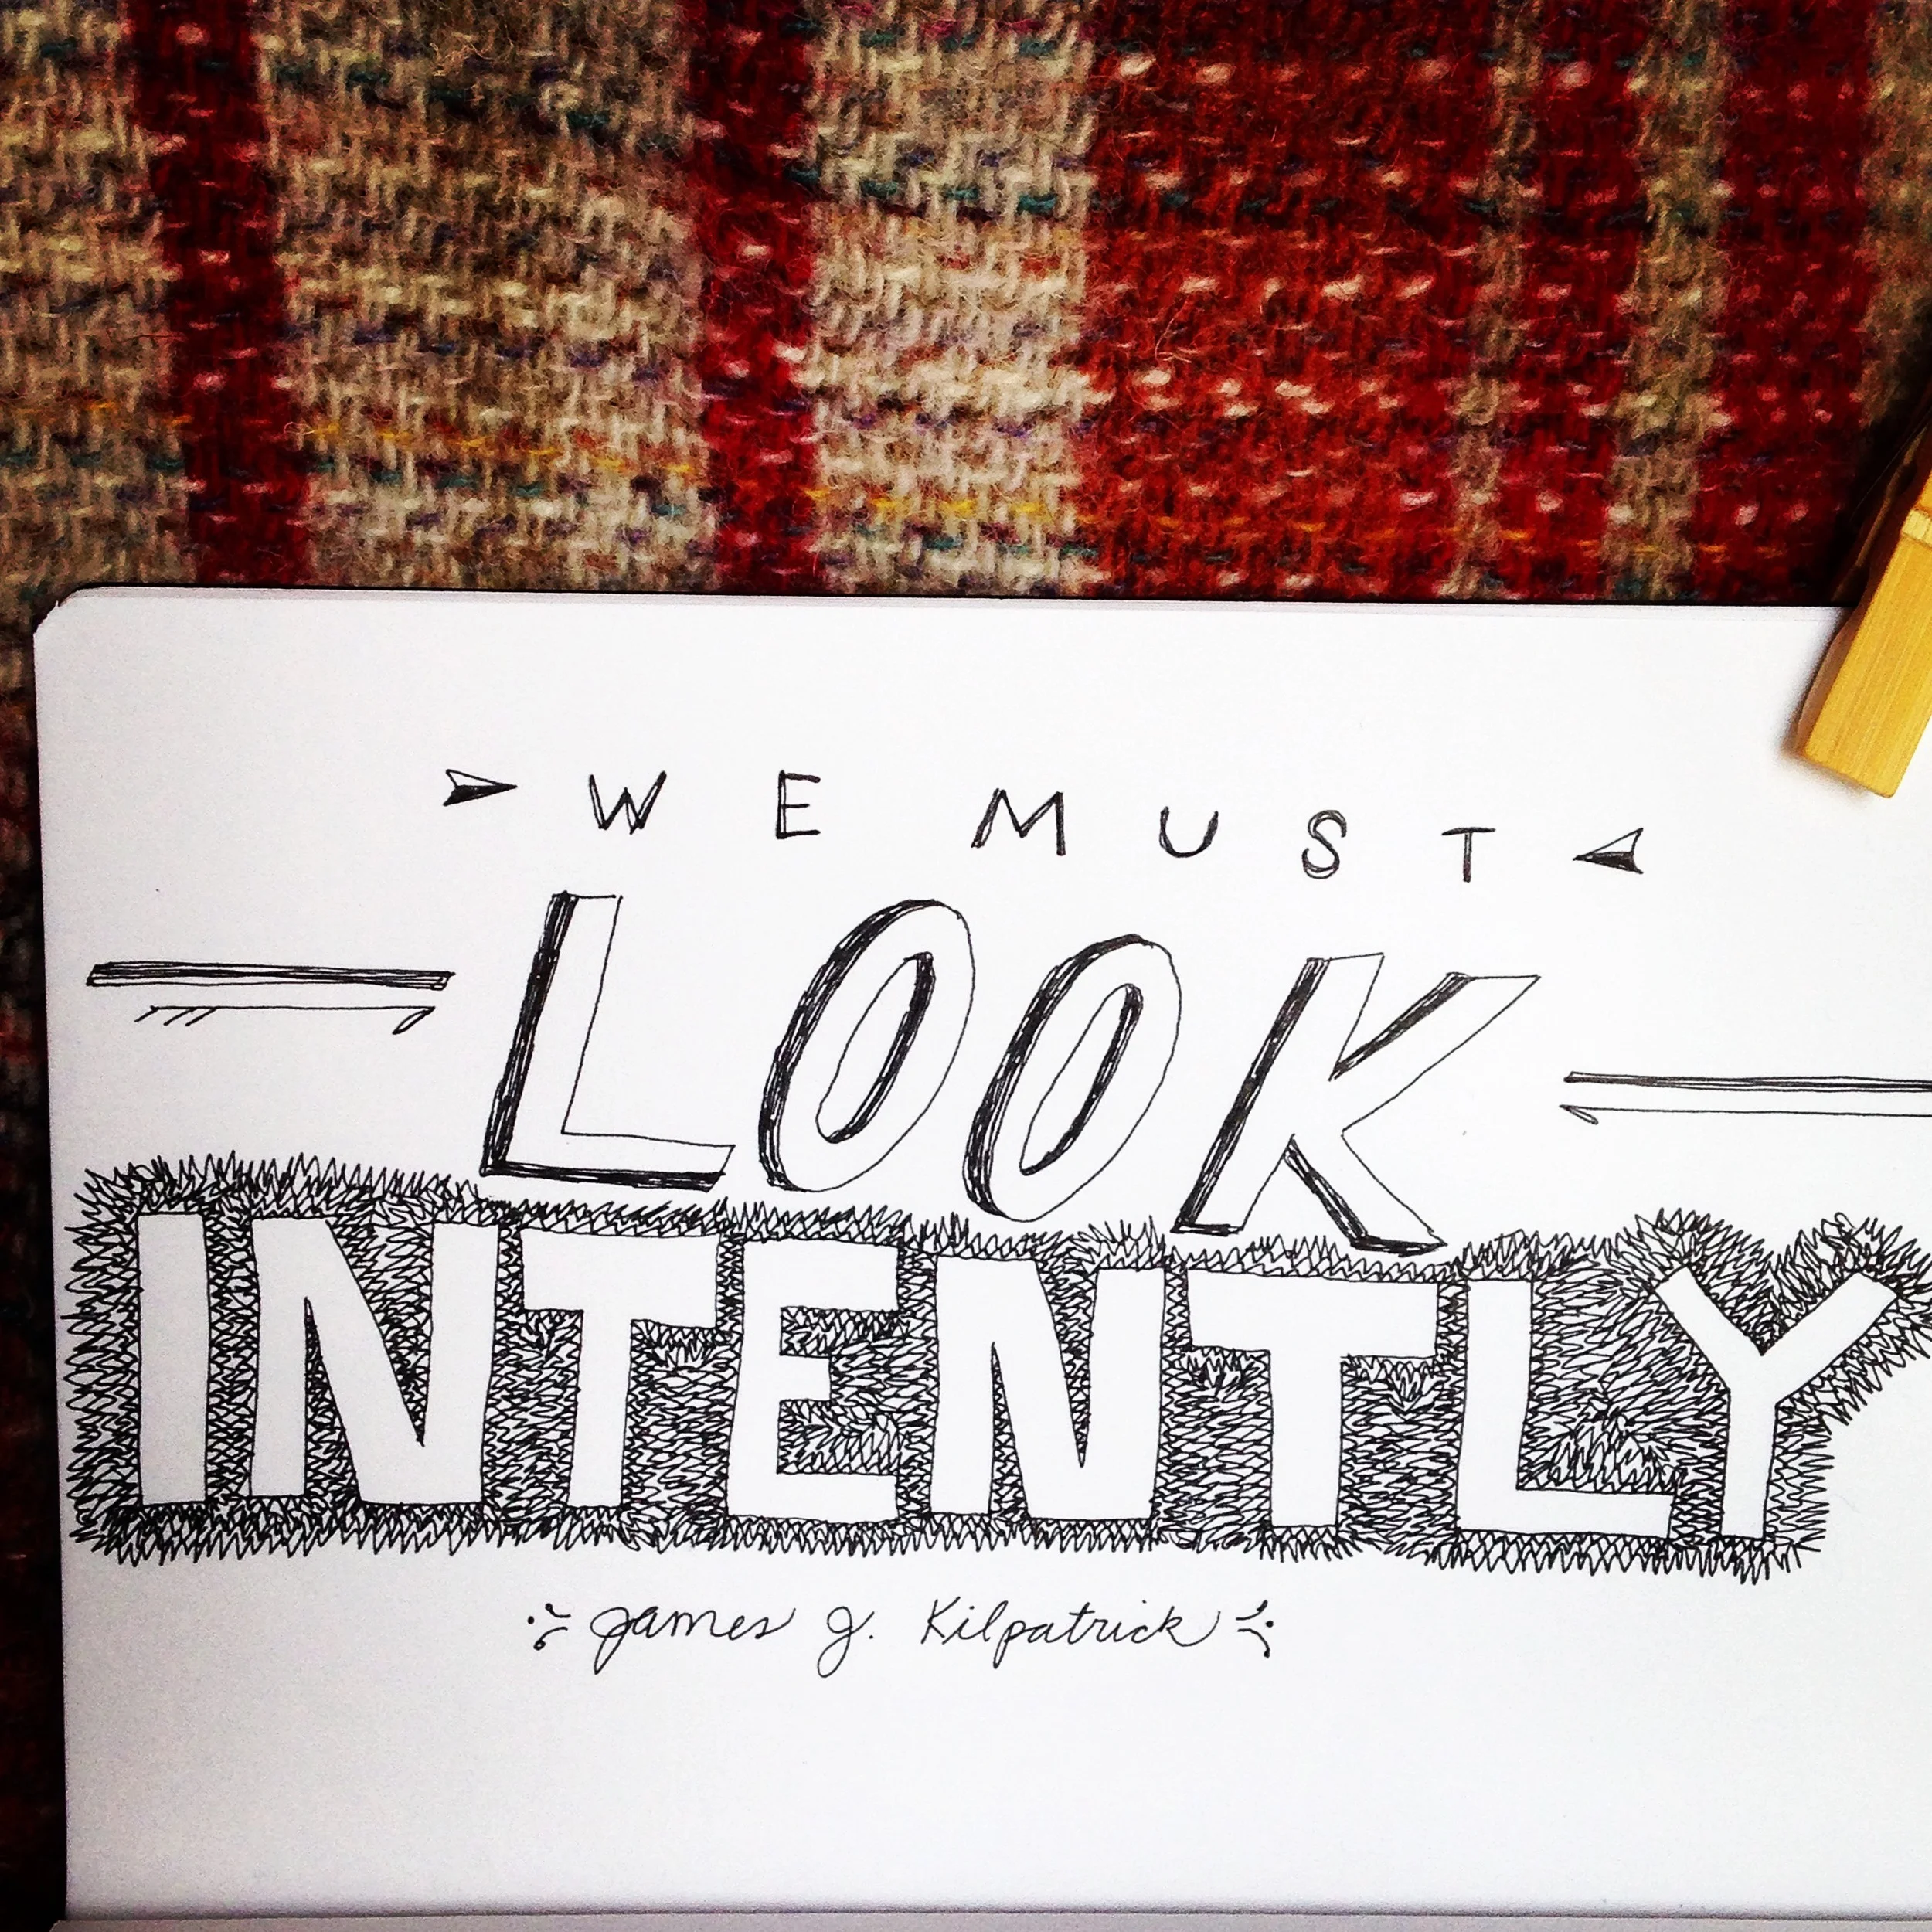 WE MUST
LOOK
INTENTLY
James J. Kilpatrick